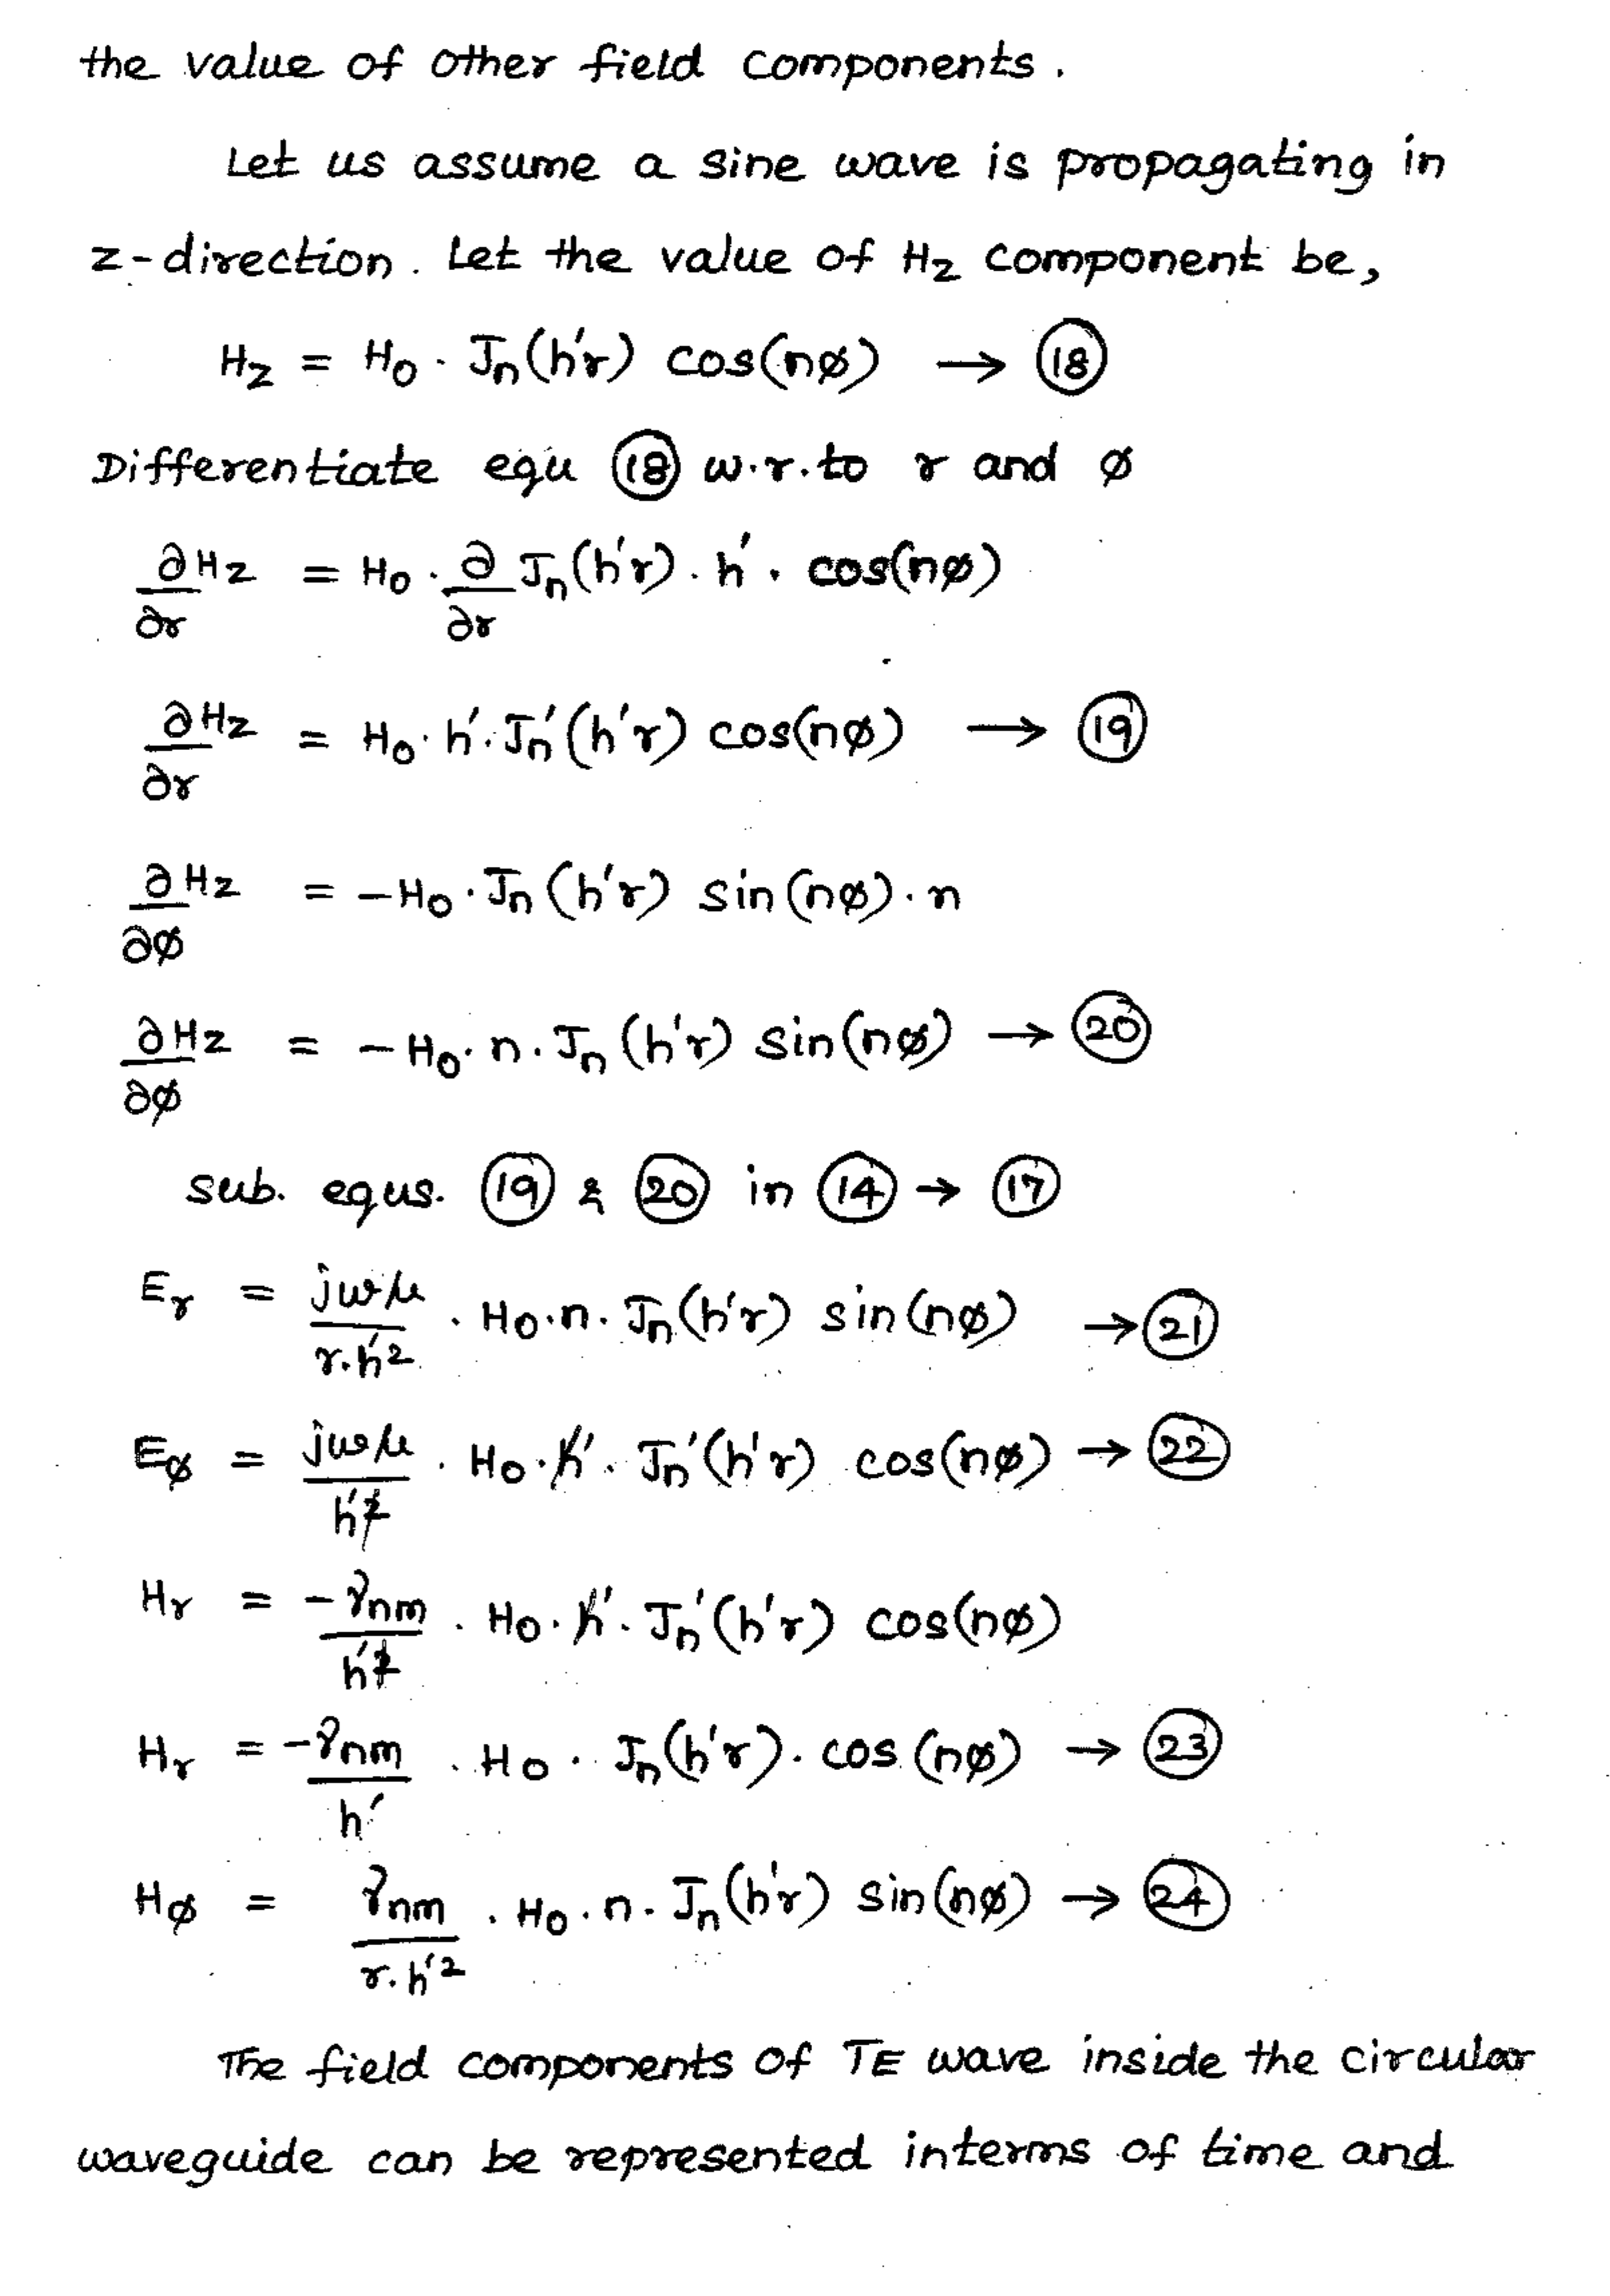 the value of other field components.
Let us assume a sine wave is propagating in
z-direction. Let the value of Hz component be,
Hz = H₀ · Jₙ(h'r) cos(nø) → (18)
Differentiate equ (18) w.r.to r and ø
∂Hz/∂r = H₀ · ∂/∂r Jₙ(h'r) · h' · cos(nø)
∂Hz/∂r = H₀ · h' · Jₙ'(h'r) cos(nø) → (19)
∂Hz/∂ø = -H₀ · Jₙ(h'r) sin(nø) · n
∂Hz/∂ø = -H₀ · n · Jₙ(h'r) sin(nø) → (20)
sub. equs. (19) & (20) in (14) → (17)
Eᵣ = jωμ/r.h'² · H₀.n. Jₙ(h'r) sin(nø) → (21)
Eø = jωμ/h'² · H₀ · h' · Jₙ'(h'r) cos(nø) → (22)
Hᵣ = -γnm/h'² · H₀ · h' · Jₙ'(h'r) cos(nø)
Hᵣ = -γnm/h' · H₀ · Jₙ(h'r) · cos(nø) → (23)
Hø = γnm/r.h'² · H₀ · n · Jₙ(h'r) sin(nø) → (24)
The field components of TE wave inside the circular
waveguide can be represented interms of time and